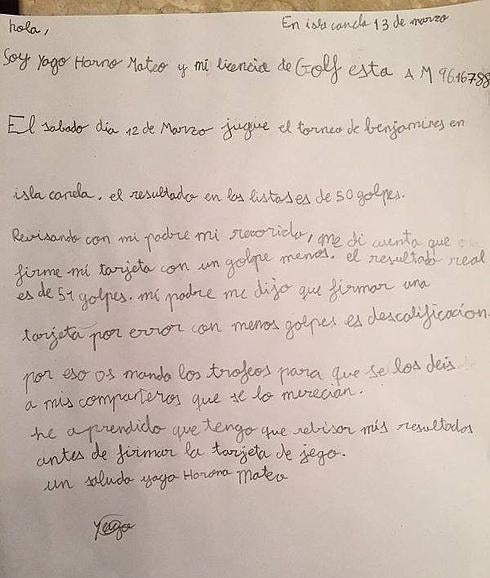 hola,
En isla canela 13 de marzo
Soy Yago Horno Mateo y mi licencia de Golf esta AM 96.16788
El sabado dia 12 de Marzo jugue el torneo de benjamines en
isla canela. el resultado en las listas es de 50 golpes.
Revisando con mi padre mi recorrido, me di cuenta que
firme mi tarjeta con un golpe menos. el resultado real
es de 51 golpes. mi padre me dijo que firmar una
tarjeta por error con menos golpes es descalificacion.
por eso os mando los trofeos para que se los deis
a mis compañeros que se lo merecian.
he aprendido que tengo que rebisar mis resultados
antes de firmar la tarjeta de jego.
un saludo yago Horono Mateo
Yago